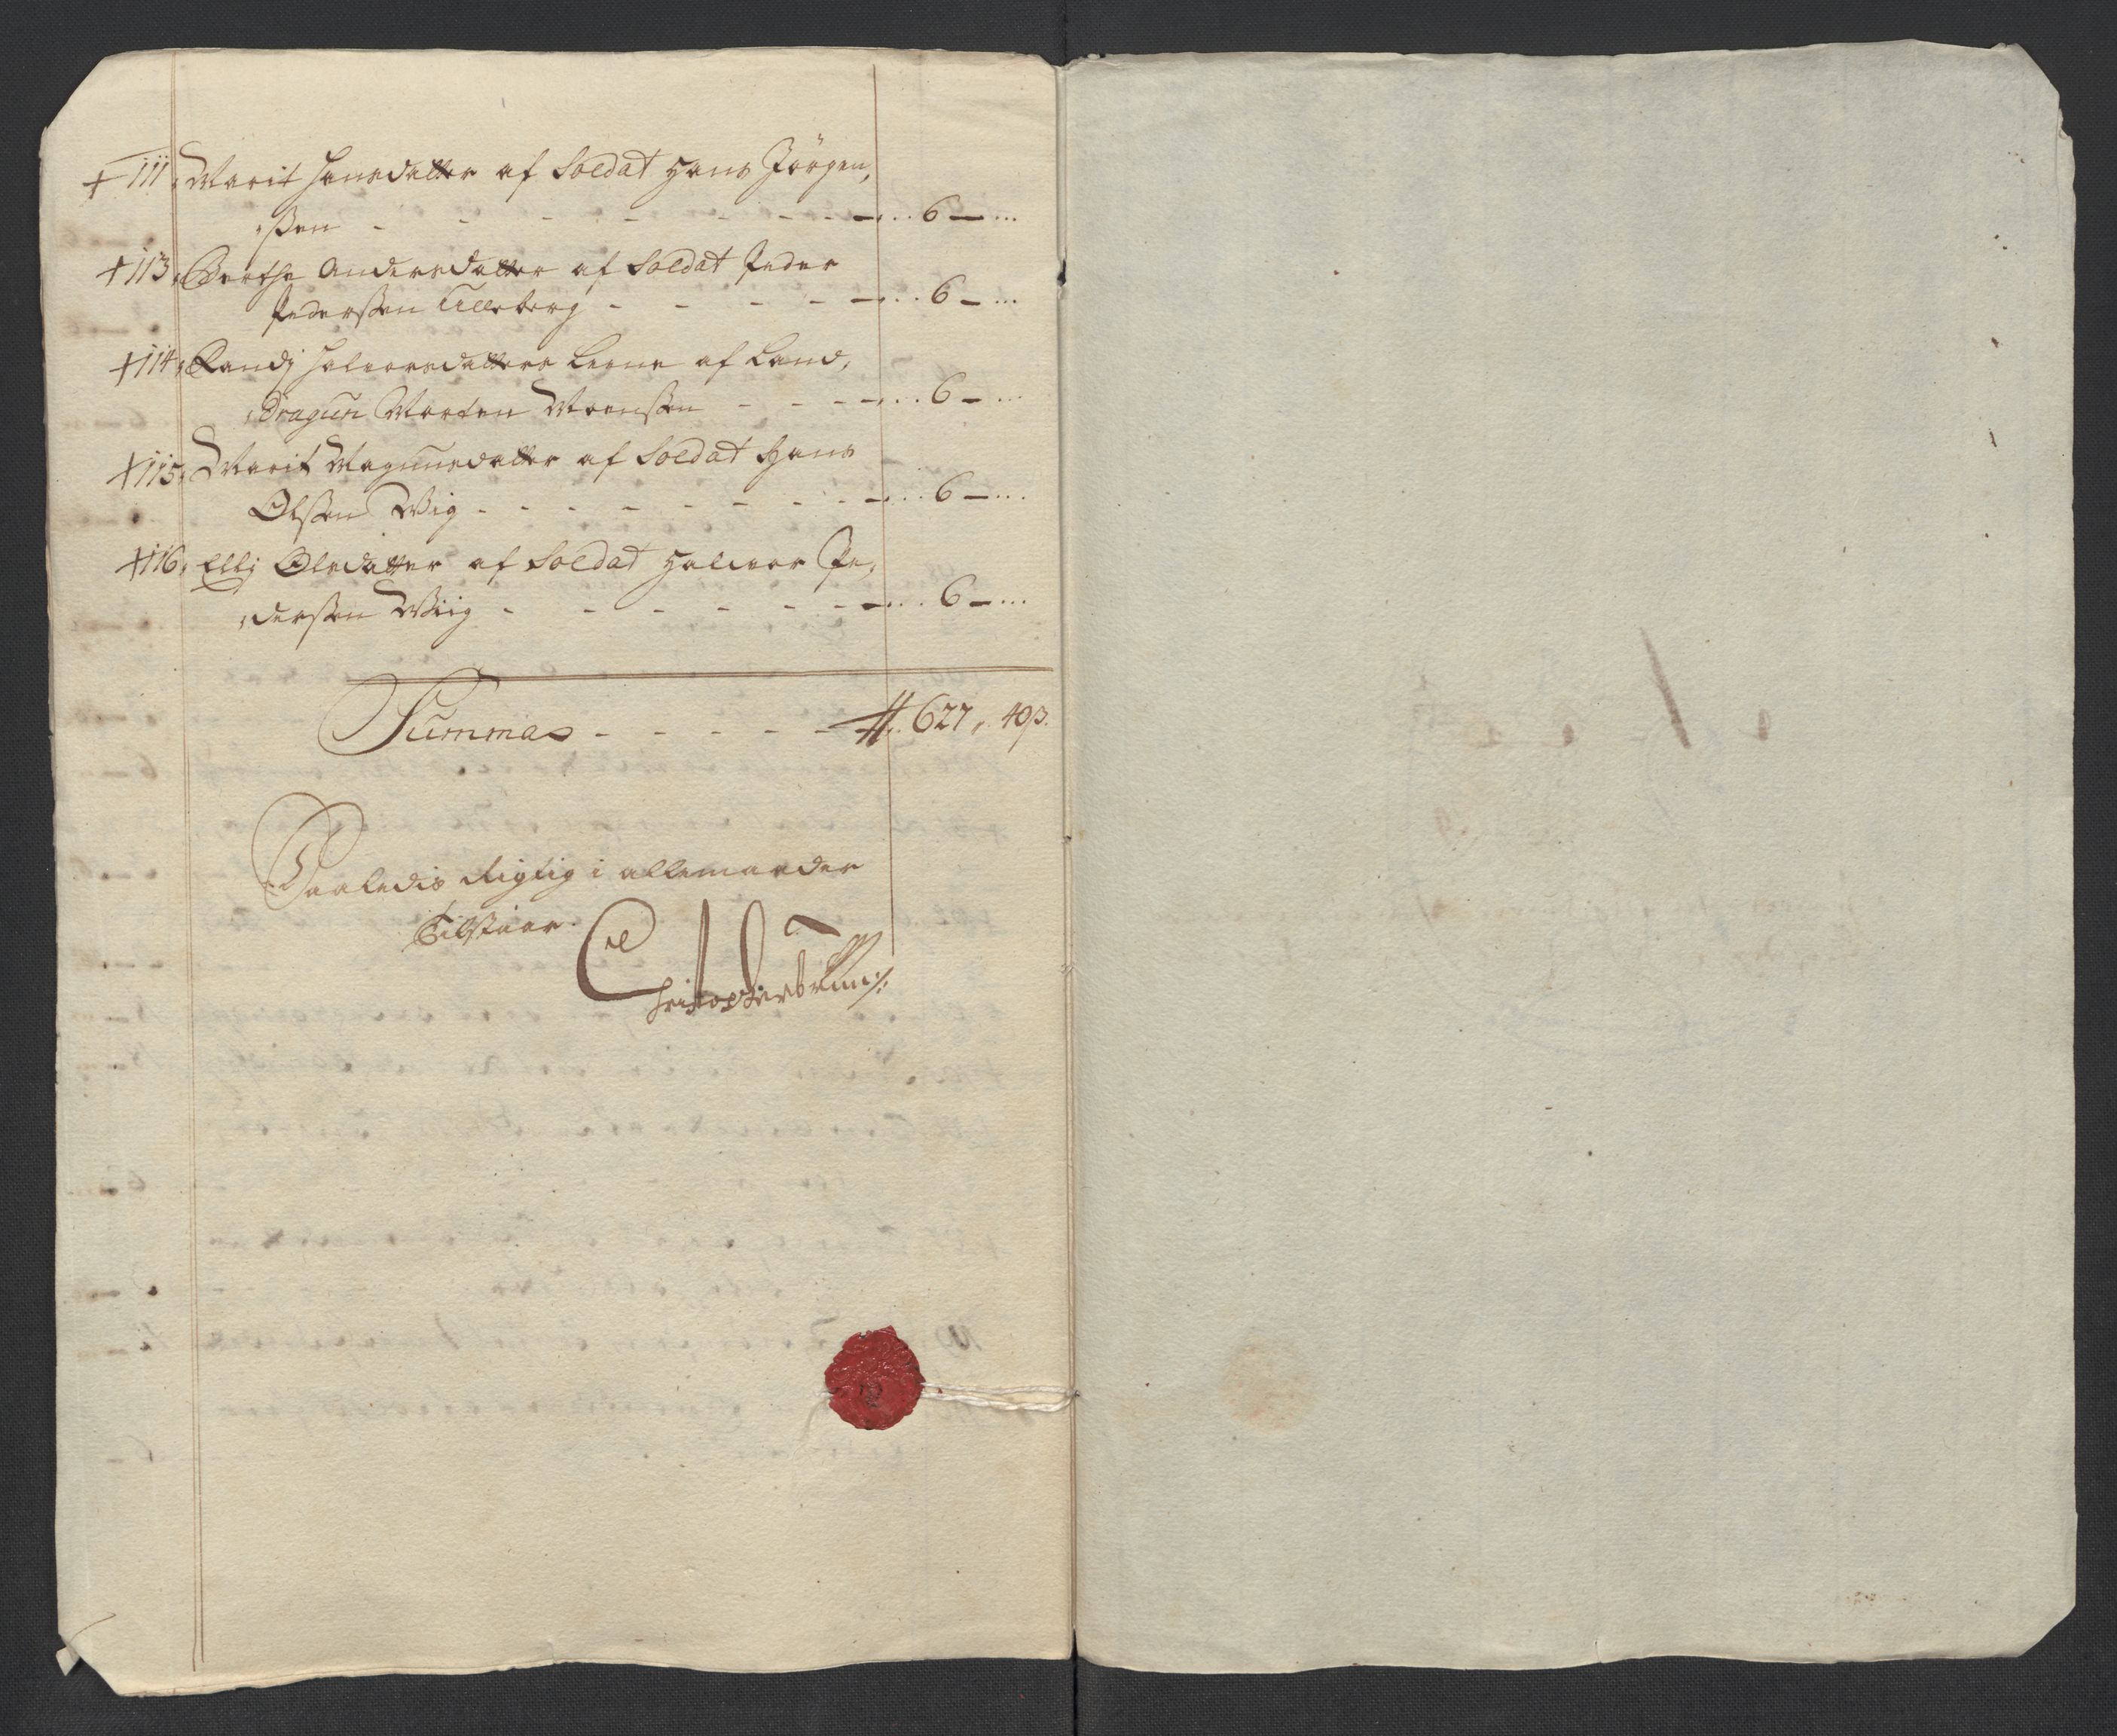 + 111, Marit Hansdatter af Soldat Hans Jörgen,
,ßen - - - - - - - - . . 6 — ...
+ 113, Berthe Andersdatter af Soldat Peder
Pederßen Ulleberg - - - - - . . 6 — ...
+ 114, Randj Halvorsdatters Leene af Land,
,Dragun Morten Moenßen - - - - . . 6 — ...
+ 115, Marit Magnusdatter af Soldat Hans
Olßen Wiig - - - - - - - - . . 6 — ...
+ 116, Elli Olsdatter af Soldat Halvor Pe,
,derßen Wiig - - - - - - - . . 6 — ...
Summa - - - - - 627 „ 40 β.
Saaledis Rigtig i allemaader
Tilstaar.
Christopher Brun